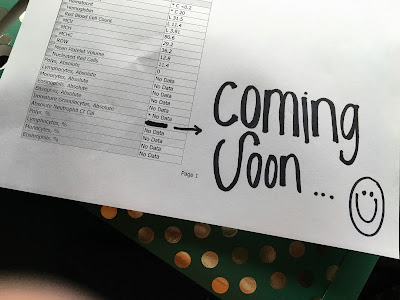 Hematocrit
Hemoglobin * C 20
Red Blood Cell Count L 31.5
MCV L 11.4
MCH L 3.91
MCHC 80.6
RDW 29.2
Mean Platelet Volume 36.2
Nucleated Red Cells 12.8
Polys, Absolute 11.4
Lymphocytes, Absolute 0
Monocytes, Absolute No Data
Eosinophils, Absolute No Data
Basophils, Absolute No Data
Immature Granulocytes, Absolute No Data
Absolute Neutrophil Ct Cal * No Data
Polys, % No Data
Lymphocytes, % No Data
Monocytes, % No Data
Eosinophils, % No Data
Page 1
Coming
Soon ...